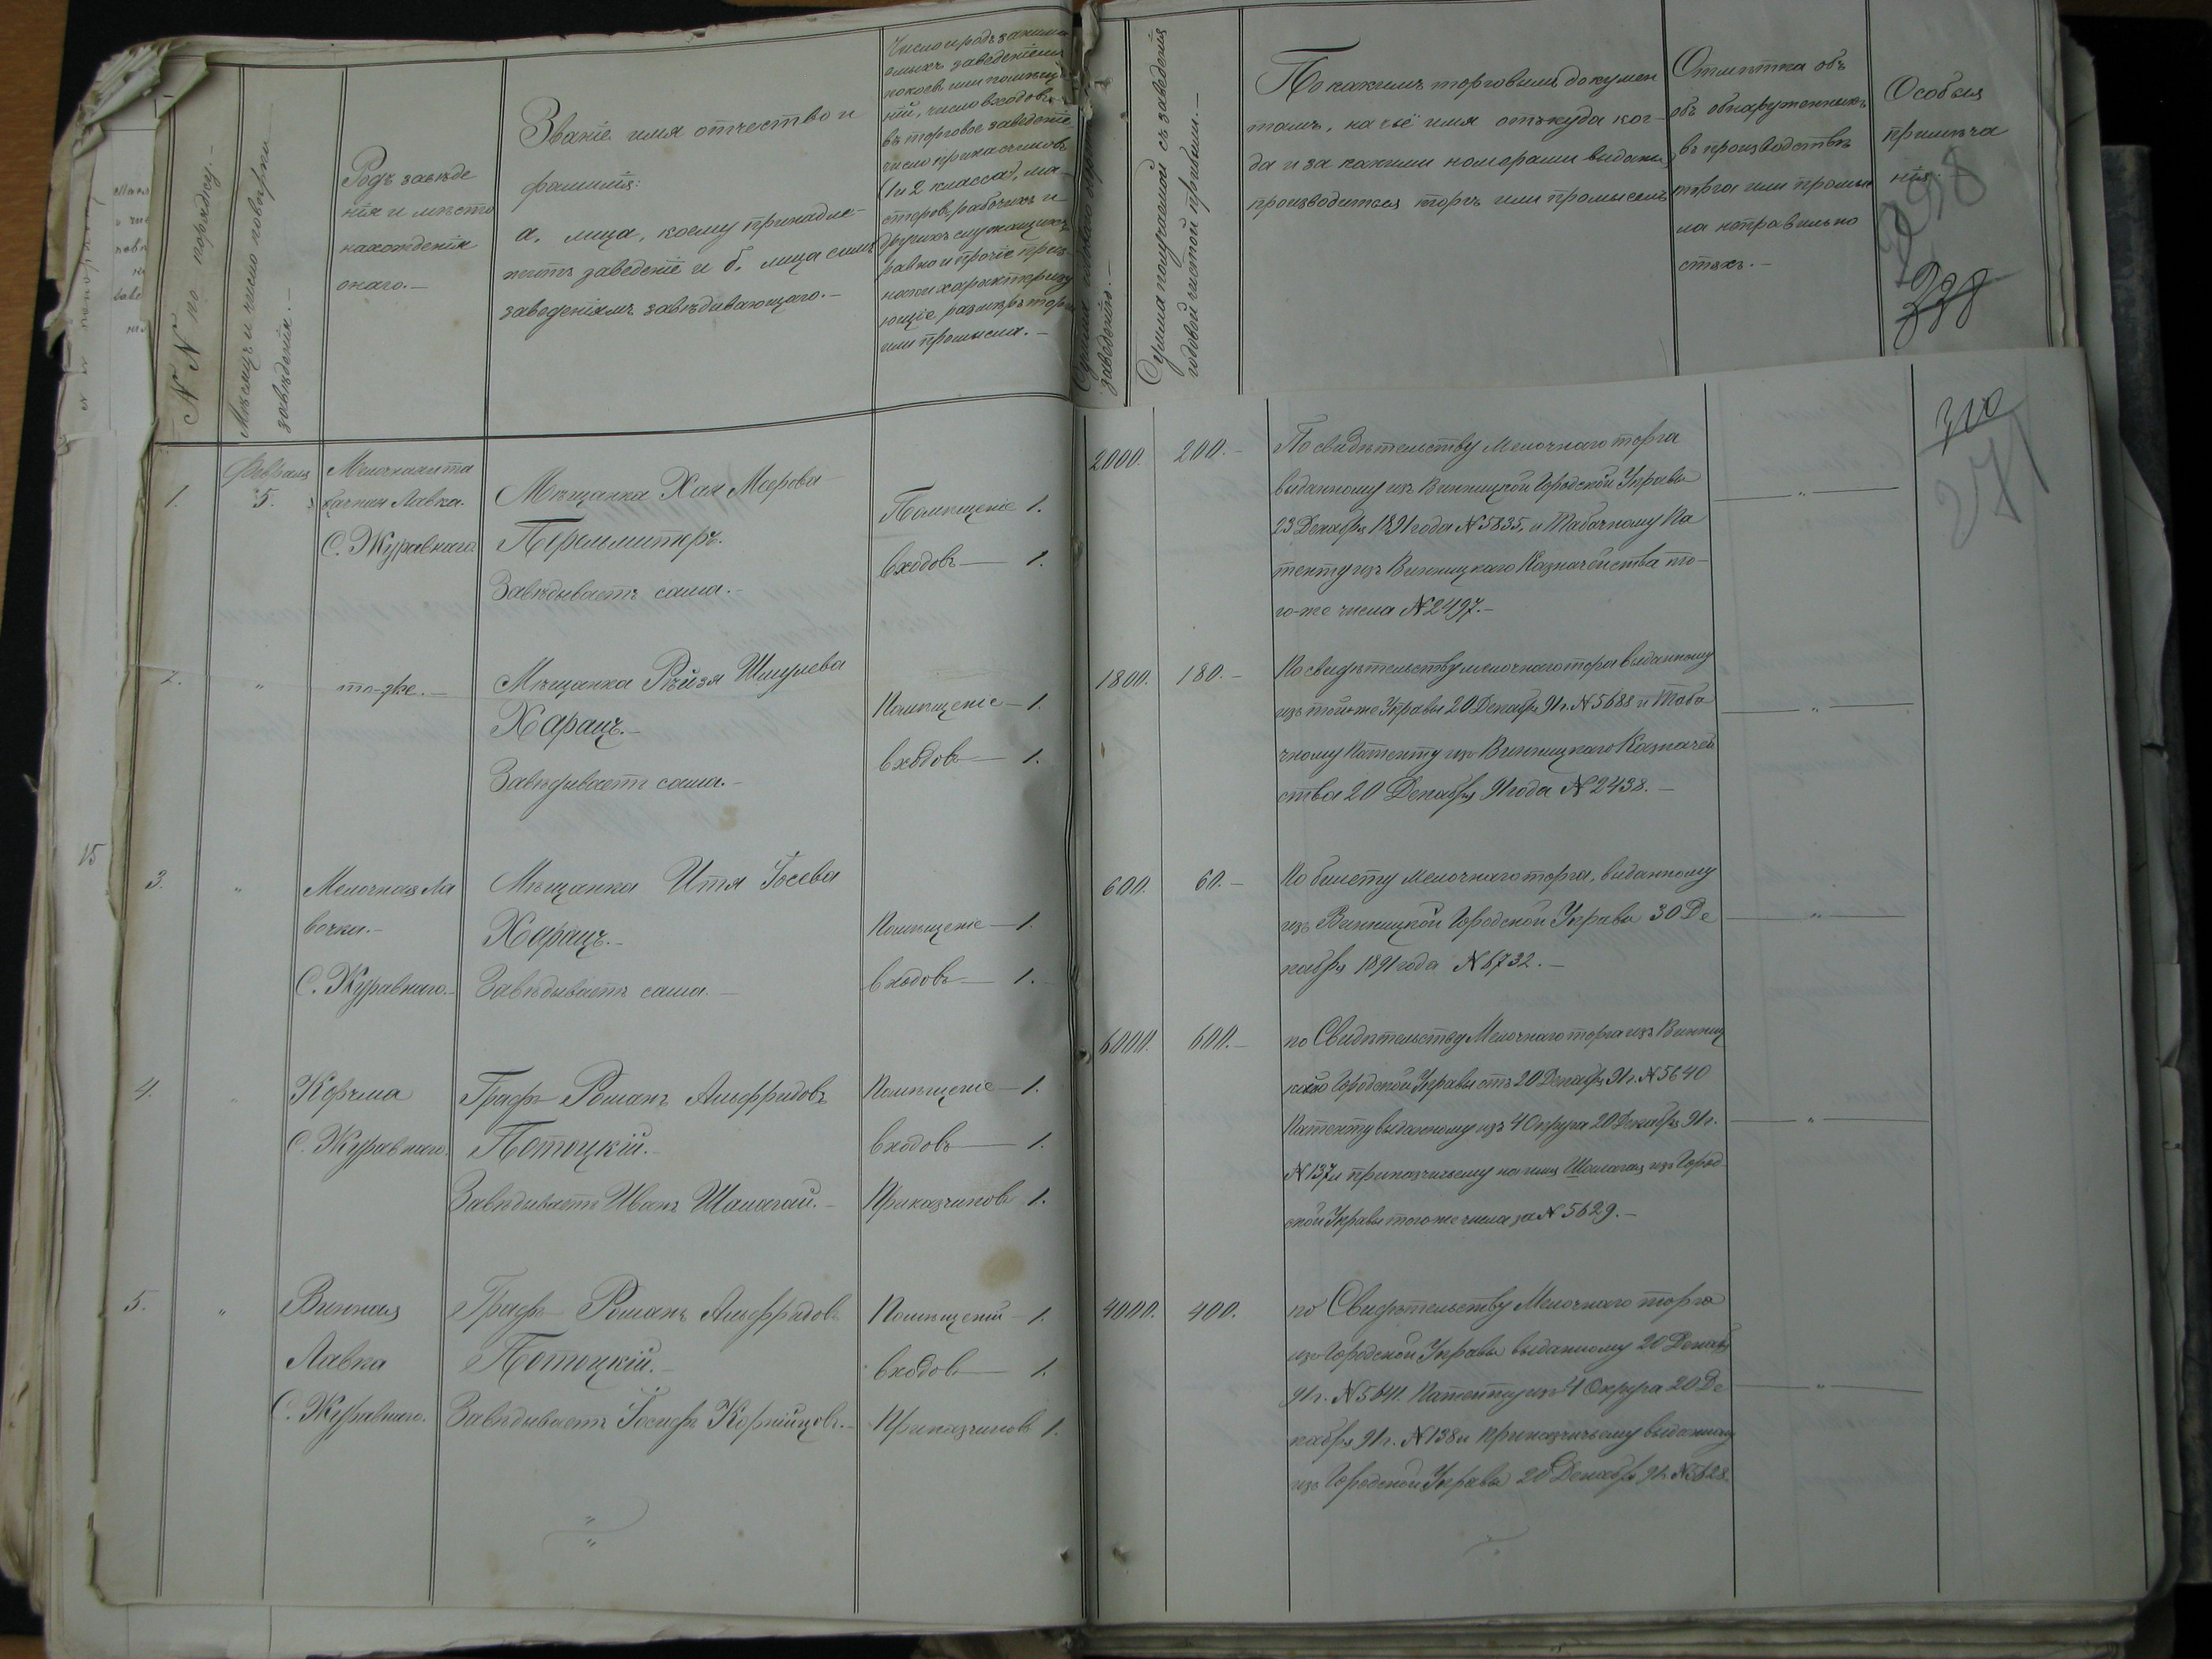 N N по порядку.—
Мѣсяцъ и число повѣрки
заведенія.—
Родъ заведе
нія и мѣсто
нахожденія
онаго.—
Званіе имя отчество и
фамилія:
а, лица, коему принадле-
житъ заведеніе и б, лица симъ
заведеніямъ завѣдывающаго.—
Число и родъ занима
емыхъ заведеніемъ
покоевъ или помѣще
ній, число входовъ
въ торговое заведеніе
число прикасчиковъ
(1 и 2 класса), ма-
стеровъ, рабочихъ и
другихъ служащихъ
равно и прочіе приз-
наки характеризу
ющіе размѣръ торга
или промысла.—
заведенію.—
Сумма получаемой съ заведенія
годовой чистой прибыли.—
По какимъ торговымъ докумен
тамъ, на чьё имя откуда ког-
да и за какими номерами выданы
производится торгъ или промыселъ
Отмѣтка объ
объ обнаруженныхъ
въ производствѣ
торга или промы
ла неправильно
стяхъ.—
Особыя
примѣча
нія.
298
338
310
271
1.
Февраля
5.
Мелочная и та
бачная Лавка.
С. Журавнаго
Мѣщанка Хая Меерова
Перельмитеръ.
Завѣдываетъ сама.—
Помѣщеніе 1.
входовъ — 1.
2000.
200.—
По свидѣтельству Мелочнаго торга
выданному изъ Винницкой Городской Управы
23 Декабря 1891 года N 5835, и Табачному Па
тенту изъ Винницкаго Казначейства то-
го-же числа N 2497.—
— " —
2.
"
то-же.—
Мѣщанка Рейзя Шмулева
Харацъ.—
Завѣдываетъ сама.—
Помѣщеніе — 1.
входовъ — 1.
1800.
180.—
По свидѣтельству мелочнаго торга выданному
изъ той же Управы 20 Декабря 91 г. N 5688 и Таба
чному Патенту изъ Винницкаго Казначей
ства 20 Декабря 91 года N 2438.—
— " —
15
3.
"
Мелочная ла
вочка.—
С. Журавнаго.—
Мѣщанка Итя Іосева
Харацъ.—
Завѣдываетъ сама.—
Помѣщеніе — 1.
входовъ — 1.
600.
60.—
По билету мелочнаго торга, выданному
изъ Винницкой Городской Управы 30 Де
кабря 1891 года N 6732.—
— " —
4.
"
Корчма
С. Журавнаго.
Графъ Романъ Альфредовъ
Потоцкій.—
Завѣдываетъ Иванъ Шамагай.—
Помѣщеніе — 1.
входовъ — 1.
Приказчиковъ 1.
6000.
600.—
по Свидѣтельству Мелочнаго торга изъ Винниц
кой Городской Управы отъ 20 Декабря 91 г. N 5640
Патенту выданному изъ 4 Округа 20 Декабря 91 г.
N 137 и приказчичьему на имя Шамагая изъ Город-
ской Управы того же числа за N 5629.—
— " —
5.
"
Винная
Лавка
С. Журавнаго.
Графъ Романъ Альфредовъ
Потоцкій.—
Завѣдываетъ Іосифъ
Помѣщеній — 1.
входовъ — 1.
Приказчиковъ 1.
4000.
400.
по Свидѣтельству Мелочнаго торга
изъ Городской Управы выданному 20 Декаб
91 г. N 5641. Патенту изъ 4 Округа 20 Де
кабря 91 г. N 138 и приказчичьему выданному
изъ Городской Управы 20 Декабря 91 г. N 5628.
— " —